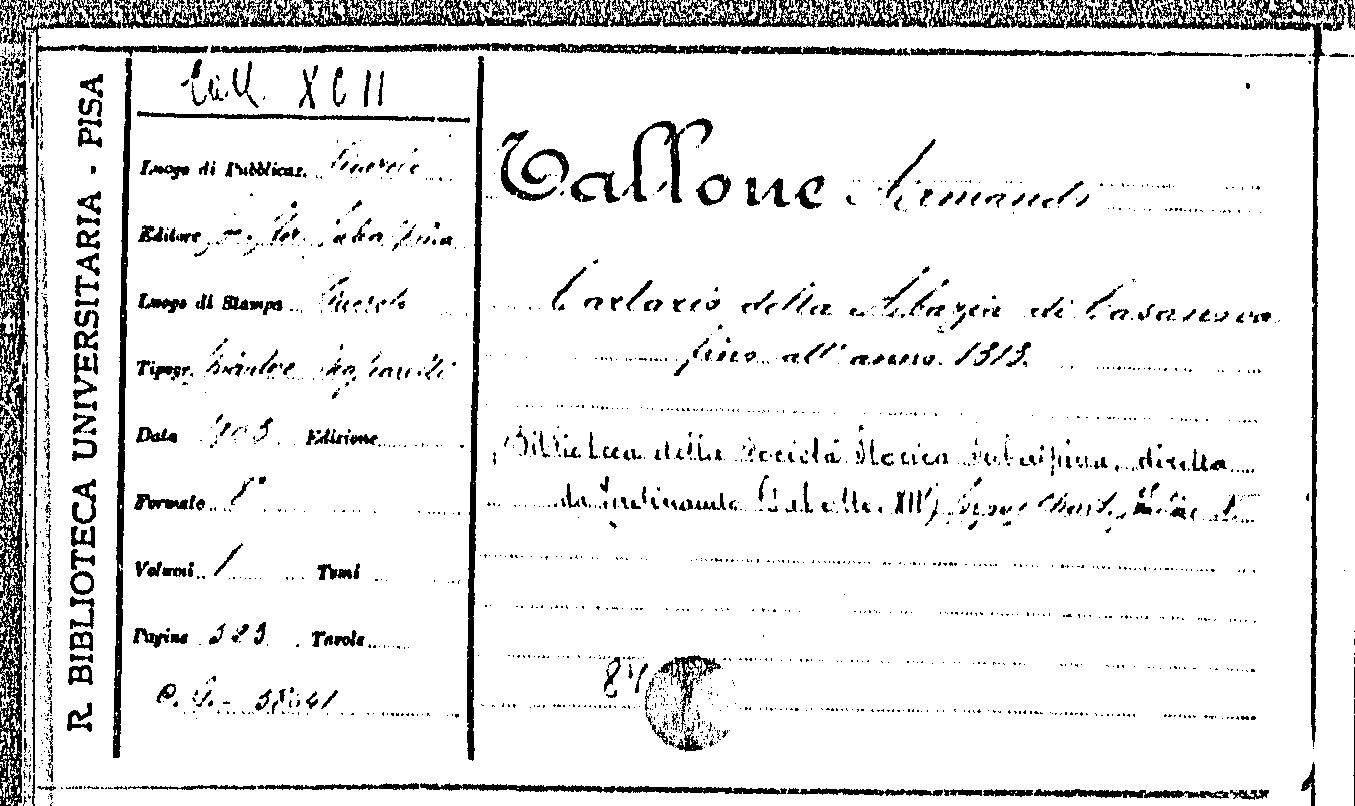 R. BIBLIOTECA UNIVERSITARIA - PISA
Coll. XCII
Luogo di Pubblicaz. Pinerolo
Editore Subalpina
Luogo di Stampa Pinerolo
Tipogr.
Data 903 Edizione
Formato 8°
Volumi 1 Tomi
Pagine 323 Tavole
C. G. -
Tallone Armando
Cartario della Abazia di Casanova
fino all' anno 1313.
Biblioteca della Società Storica Subalpina, diretta
da Ferdinando Gabotto. XIV,
84